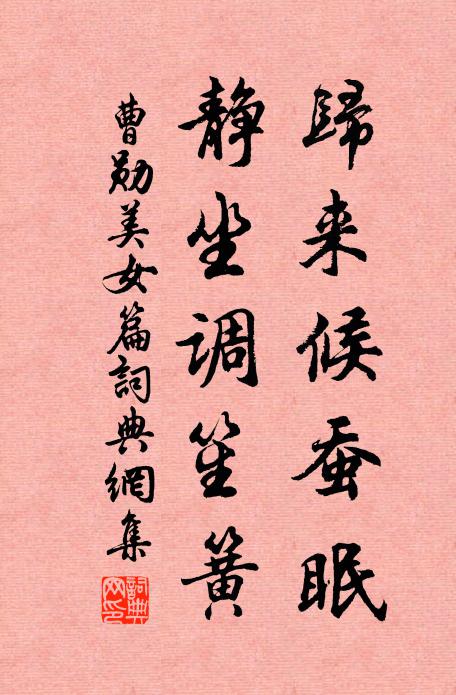 歸来候蚕眠
静坐调笙簧
曹勛美女篇詞典網集
詞典網印